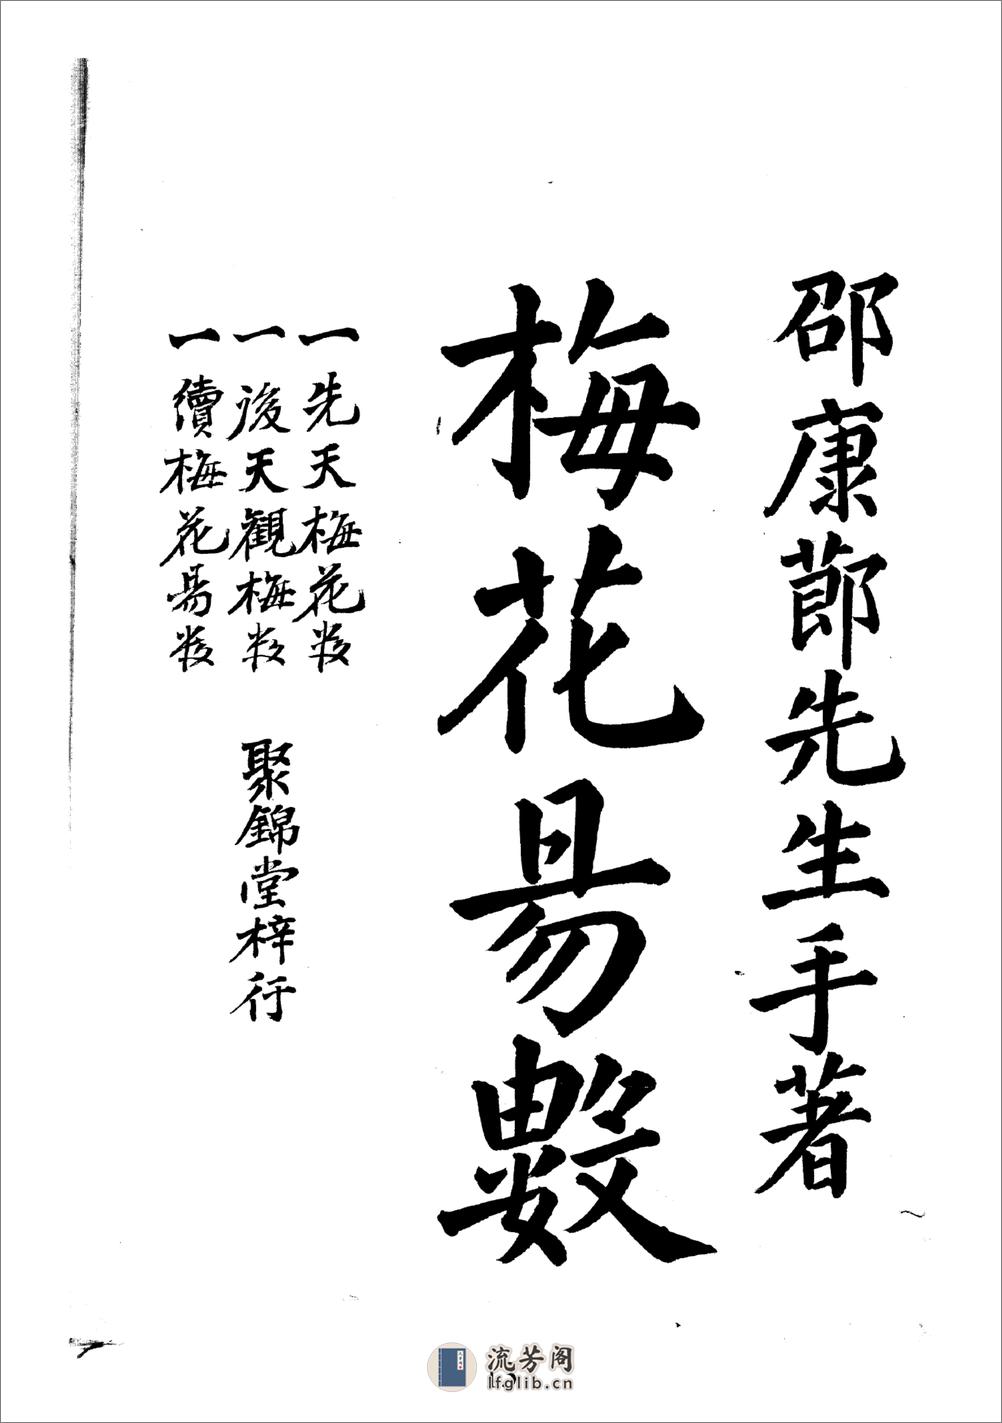 邵康莭先生手著
梅花易數
一先天梅花数
一後天觀梅数
一續梅花易数
聚錦堂梓行
流芳阁
lfglib.cn